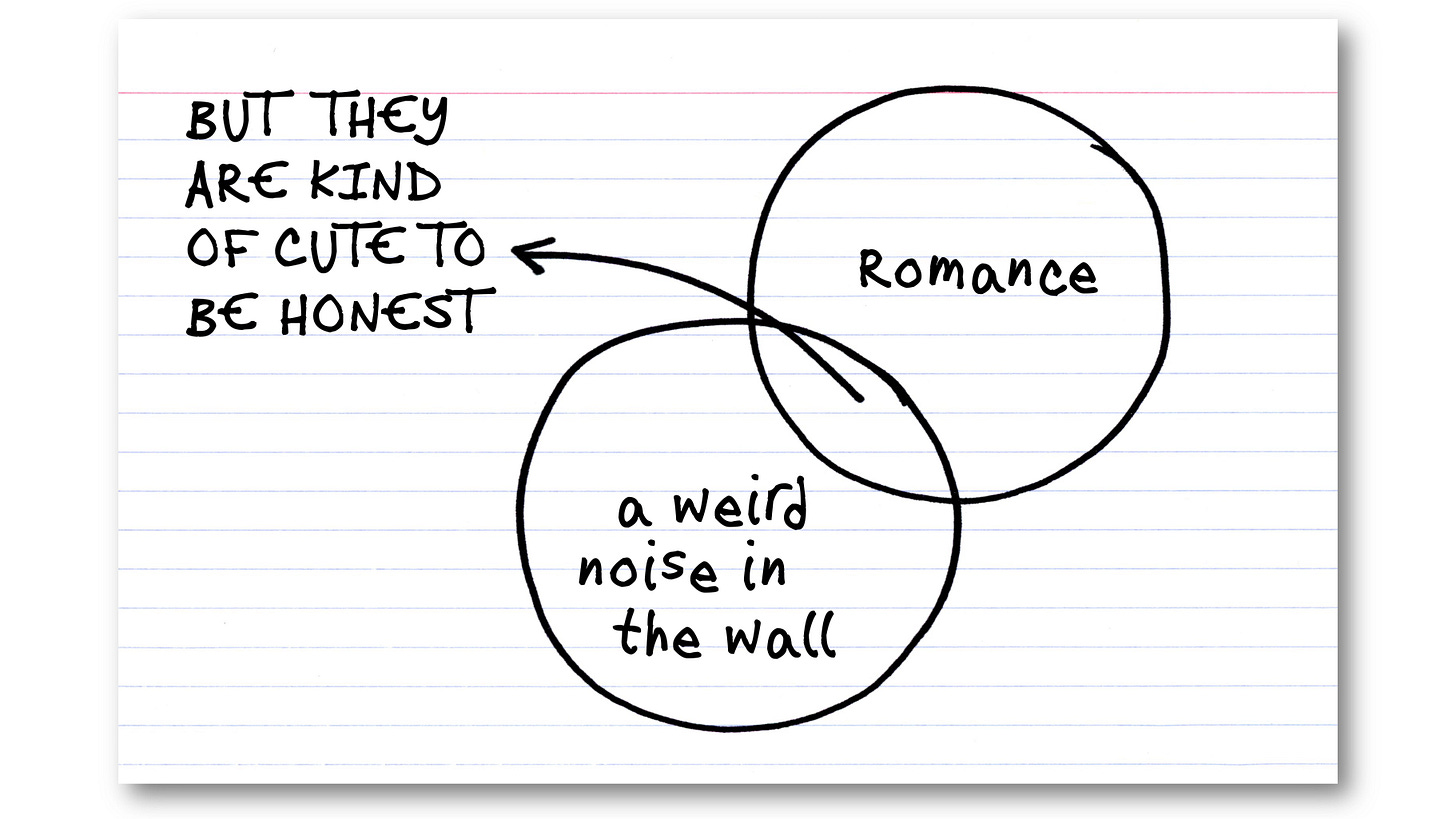 BUT THEY
ARE KIND
OF CUTE TO
BE HONEST
Romance
a weird
noise in
the wall